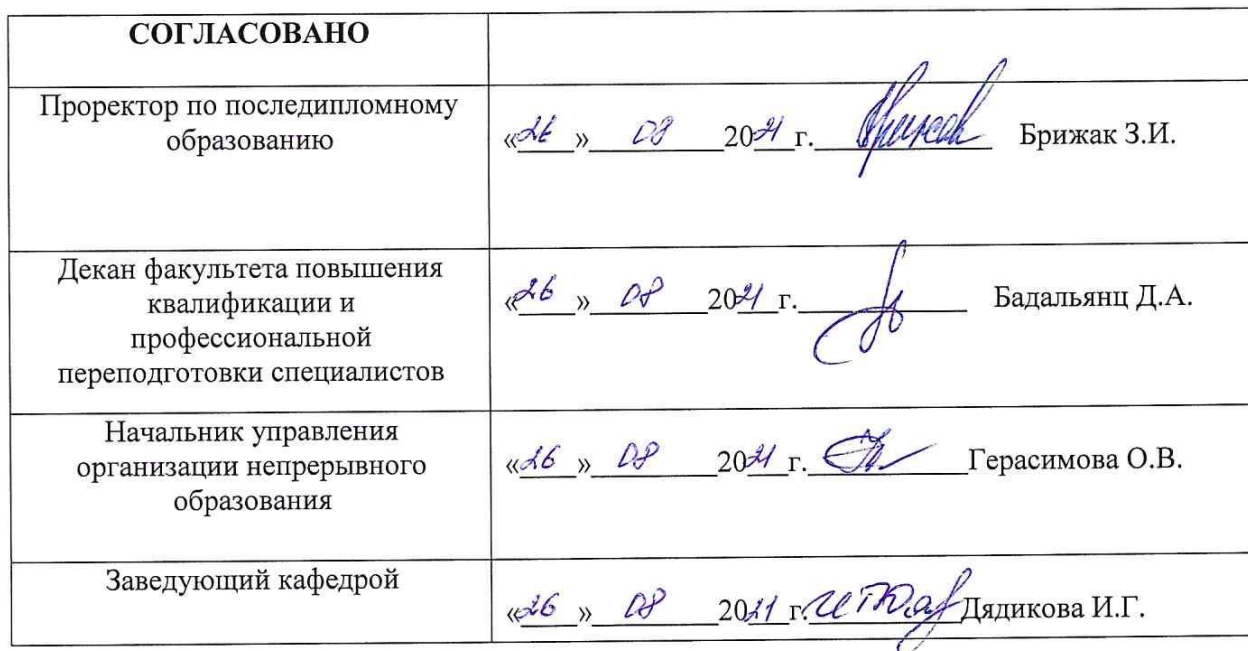 СОГЛАСОВАНО
Проректор по последипломному
образованию
«26» 08 2021 г. Брижак З.И.
Декан факультета повышения
квалификации и
профессиональной
переподготовки специалистов
«26» 08 2021 г. Бадальянц Д.А.
Начальник управления
организации непрерывного
образования
«26» 08 2021 г. Герасимова О.В.
Заведующий кафедрой
«26» 08 2021 г. Дядикова И.Г.